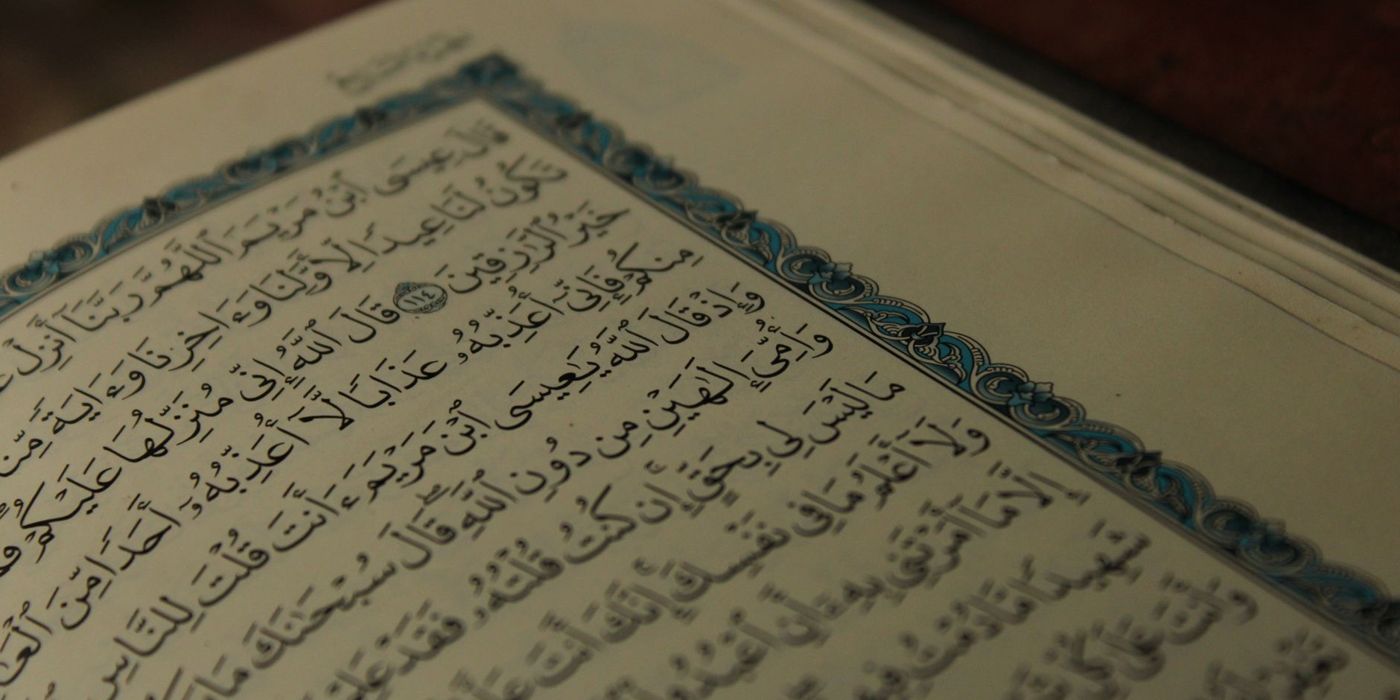 قَالَ عِيسَى ٱبْنُ مَرْيَمَ ٱللَّهُمَّ رَبَّنَآ أَنزِلْ
تَكُونُ لَنَا عِيدًا لِّأَوَّلِنَا وَءَاخِرِنَا وَءَايَةً
خَيْرُ ٱلرَّٰزِقِينَ ١١٤ قَالَ ٱللَّهُ إِنِّى مُنَزِّلُهَا عَلَيْكُمْ
مِنكُمْ فَإِنِّىٓ أُعَذِّبُهُۥ عَذَابًا لَّآ أُعَذِّبُهُۥٓ أَحَدًا مِّنَ
وَإِذْ قَالَ ٱللَّهُ يَٰعِيسَى ٱبْنَ مَرْيَمَ ءَأَنتَ قُلْتَ لِلنَّاسِ
وَأُمِّىَ إِلَٰهَيْنِ مِن دُونِ ٱللَّهِ ۖ قَالَ سُبْحَٰنَكَ مَا
مَا لَيْسَ لِى بِحَقٍّ ۚ إِن كُنتُ قُلْتُهُۥ فَقَدْ
وَلَآ أَعْلَمُ مَا فِى نَفْسِكَ ۚ إِنَّكَ أَنتَ
إِلَّا مَآ أَمَرْتَنِى بِهِۦٓ أَنِ
شَهِيدًا مَّا دُمْتُ
وَأَنتَ عَلَىٰ كُلِّ